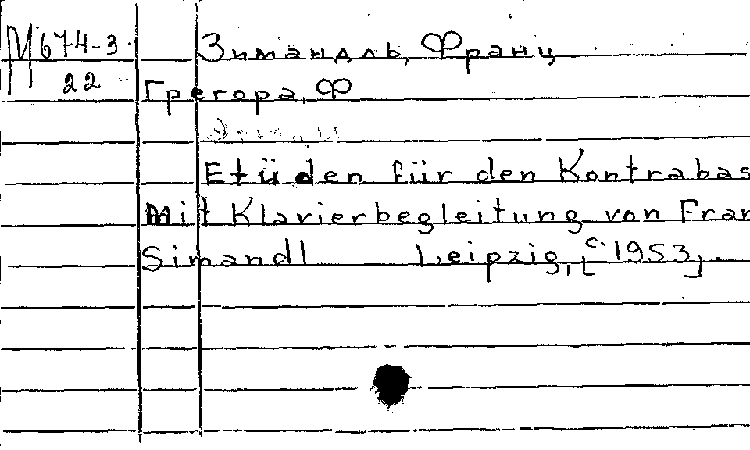 М 674-3 Зимандль, Франц
22
Грегора, Ф
Etüden für den Kontrabas
Mit Klavierbegleitung von Fran
Simandl Leipzig, [c. 1953].